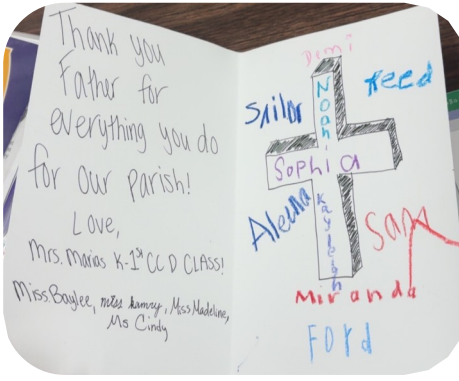 Thank you
Father for
everything you do
for our parish!
Love,
Mrs. Marias K-1st CCD CLASS!
Miss Baylee, Miss Madeline,
Ms Cindy
Demi
Sailor
Reed
Noah
Sophia
Kayleigh
Alenna
Sam
Miranda
Ford